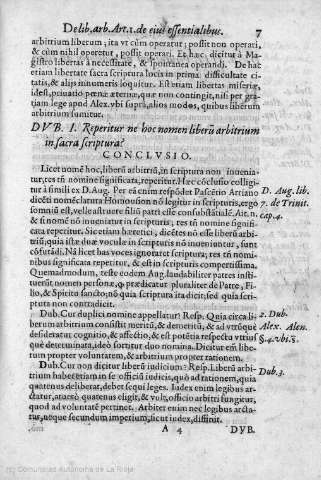 De lib. arb. Art. 1. de eius essentialibus. 7
arbitrium liberum; ita vt cũm operatur; possit non operari,
& cũm nihil operetur, possit operari. Et hæc dicitur à Ma-
gistro libertas à necessitate, & spontanea operandi. De hac
etiam libertate sacra scriptura locis in prima difficultate ci-
tatis, & alijs innumeris loquitur. Est etiam libertas miseriæ,
idest, priuatio penæ æternæ, quæ non contingit, nisi per gra-
tiam lege apud Alex. vbi supra, alios modos, quibus liberum
arbitrium sumitur.
DVB. I. Reperitur ne hoc nomen liberũ arbitrium
in sacra scriptura?
CONCLVSIO.
Licet nomẽ hoc, liberũ arbitriũ, in scriptura non inuenia-
tur, res tñ nomine significata, reperitur. Hæc cõclusio colligi-
tur à simili ex D. Aug. Per eã enim respõdet Pascẽtio Arriano
dicẽti nomẽ clatura Homousion nõ legitur in scripturis, ergo
somniũ est, velle astruere filiũ patri esse consubstãtialẽ. Ait n.
& si nomẽ nõ inueniatur in scripturis, res tñ nomine signifi-
cata reperitur. Sic etiam hæretici, dicẽtes nõ esse liberũ arbi-
triũ, quia istæ duæ vocula in scripturis nõ inueniuntur, sunt
cõfutãdi. Nã licet has voces ignoraret scriptura; res tñ nomi-
nibus significata reperitur, & est in scripturis compertissima.
Quemadmodum, teste eodem Aug. laudabiliter patres insti-
tuerũt nomen personæ, q̃ prædicatur pluraliter de Patre, Fi-
lio, & Spiritu sancto, nõ quia scriptura ita dicit; sed quia scri-
ptura non contradicit.
D. Aug. lib.
7. de Trinit.
cap. 4.
Dub. Cur duplici nomine appellatur? Resp. Quia circa li-
berum arbitrium consistit meritũ, & demeritũ, & ad vtrũque
desideratur cognitio, & affectio, & est potẽtia respectu vtrius
quę determinatã, ideò sortitur duo nomina. Dicitur enĩ libe-
rum propter voluntatem, & arbitrium propter rationem.
2. Dub.
Alex. Alen.
§. 4. vbi s.
Dub. Cur non dicitur liberũ iudicium? Resp. Liberũ arbi-
trium habet etiam in se officiũ iudicis, quò ad rationem, quia
quatenus deliberat, debet sequi leges. Iudex enim legibus as-
stat, quatenus eligit, & vult, officio arbitri fungitur,
quod ad voluntatẽ pertinet. Arbiter enim nec legibus arcta-
tur, neque secundum imperium, sicut iudex, diffinit.
Dub. 3.
A 4 DVB.
(c) Comunidad Autónoma de La Rioja